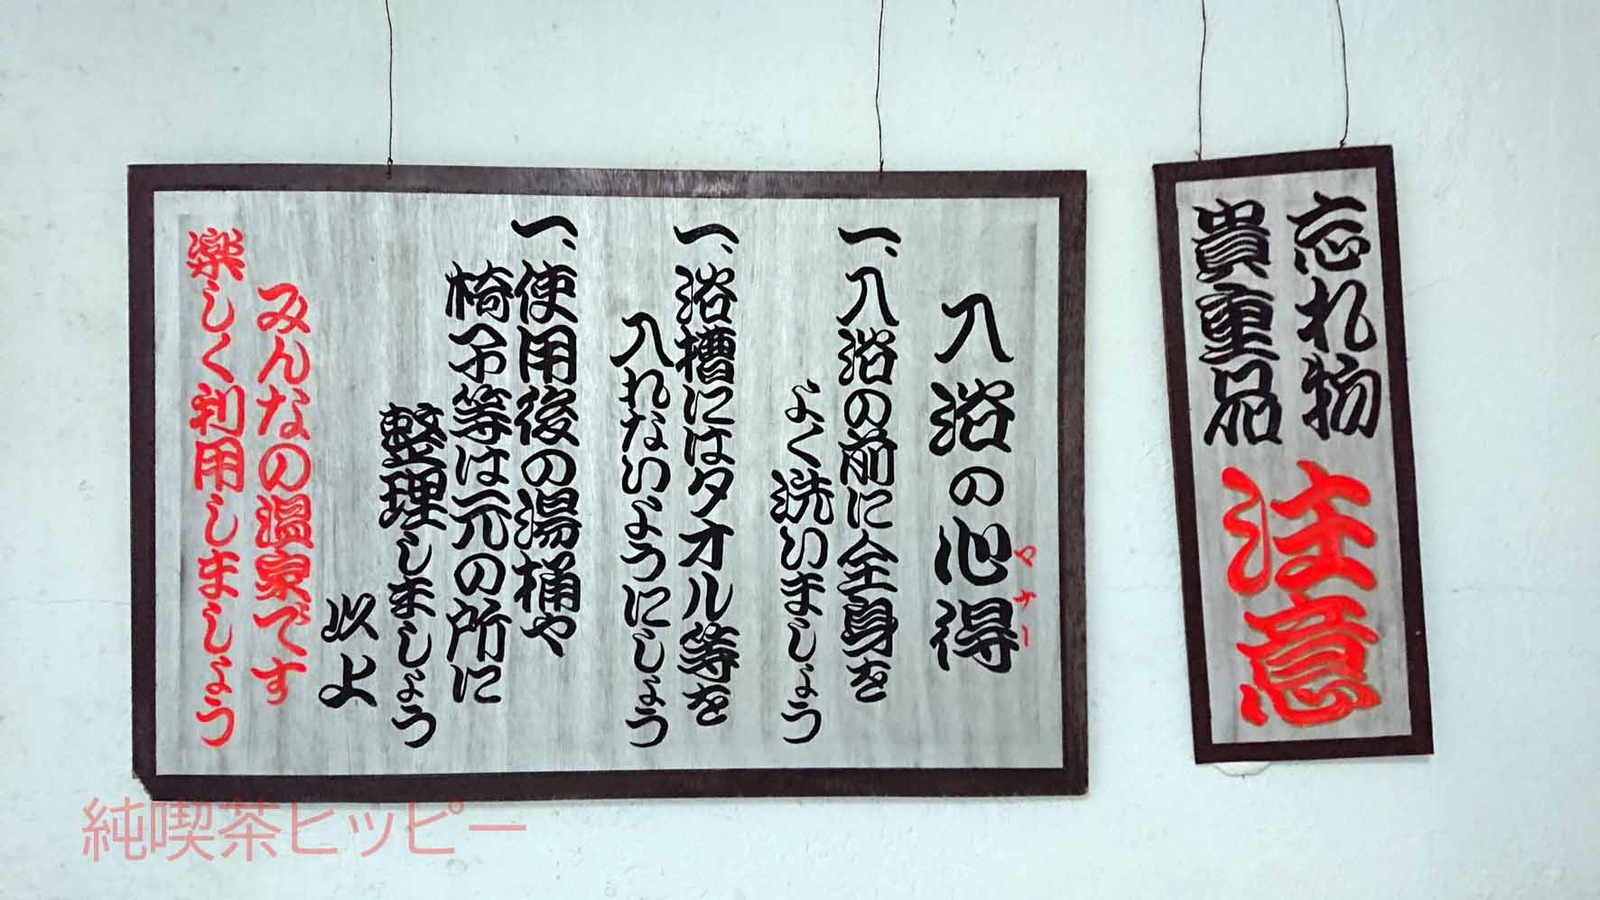 忘れ物
貴重品
注意
入浴の心得
マナー
一、入浴の前に全身を
よく洗いましょう
一、浴槽にはタオル等を
入れないようにしょう
一、使用後の湯桶や
椅子等は元の所に
整理しましょう
以上
みんなの温泉です
楽しく利用しましょう
純喫茶ヒッピー